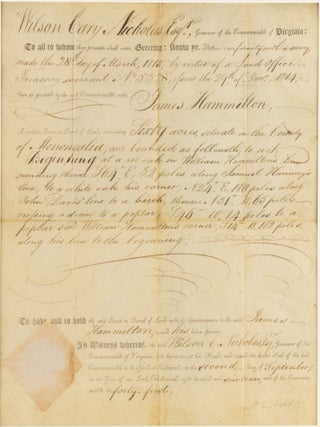 Wilson Cary Nicholas Esqr., Governor of the Commonwealth of Virginia:
To all to whom these presents shall come, Greeting: Know ye, That in conformity with a survey
made the 28th day of March, 1815, by virtue of a Land Office
Treasury warrant No. 5.538 issued the 29th of Decr. 1801,
there is granted by the said Commonwealth, unto
James Hammilton,
A certain Tract or Parcel of Land, containing Sixty acres, situate in the County
of Monongalea, and bounded as followeth, to wit,
Beginning at a red oak in William Hammilton's line
running thence E. 32 poles along Samuel Hanway's
line, to a white oak his corner, E. 110 poles along
John Davis' line to a birch, thence W. 63 poles
crossing a drain to a poplar W. 14 poles to a
poplar said William Hammilton's corner W. 102 poles
along his line to the beginning,
To have and to hold the said Tract or Parcel of Land with its appurtenances, to the said James
Hammilton, and his heirs forever.
In Witness whereof, the said Wilson C. Nicholas, Esq. Governor of the
Commonwealth of Virginia, hath hereunto set his Hand, and caused the Lesser Seal of the said
Commonwealth to be affixed at Richmond, on the day of September
in the Year of our Lord, One thousand eight hundred and sixteen and of the Commonwealth
the forty first.